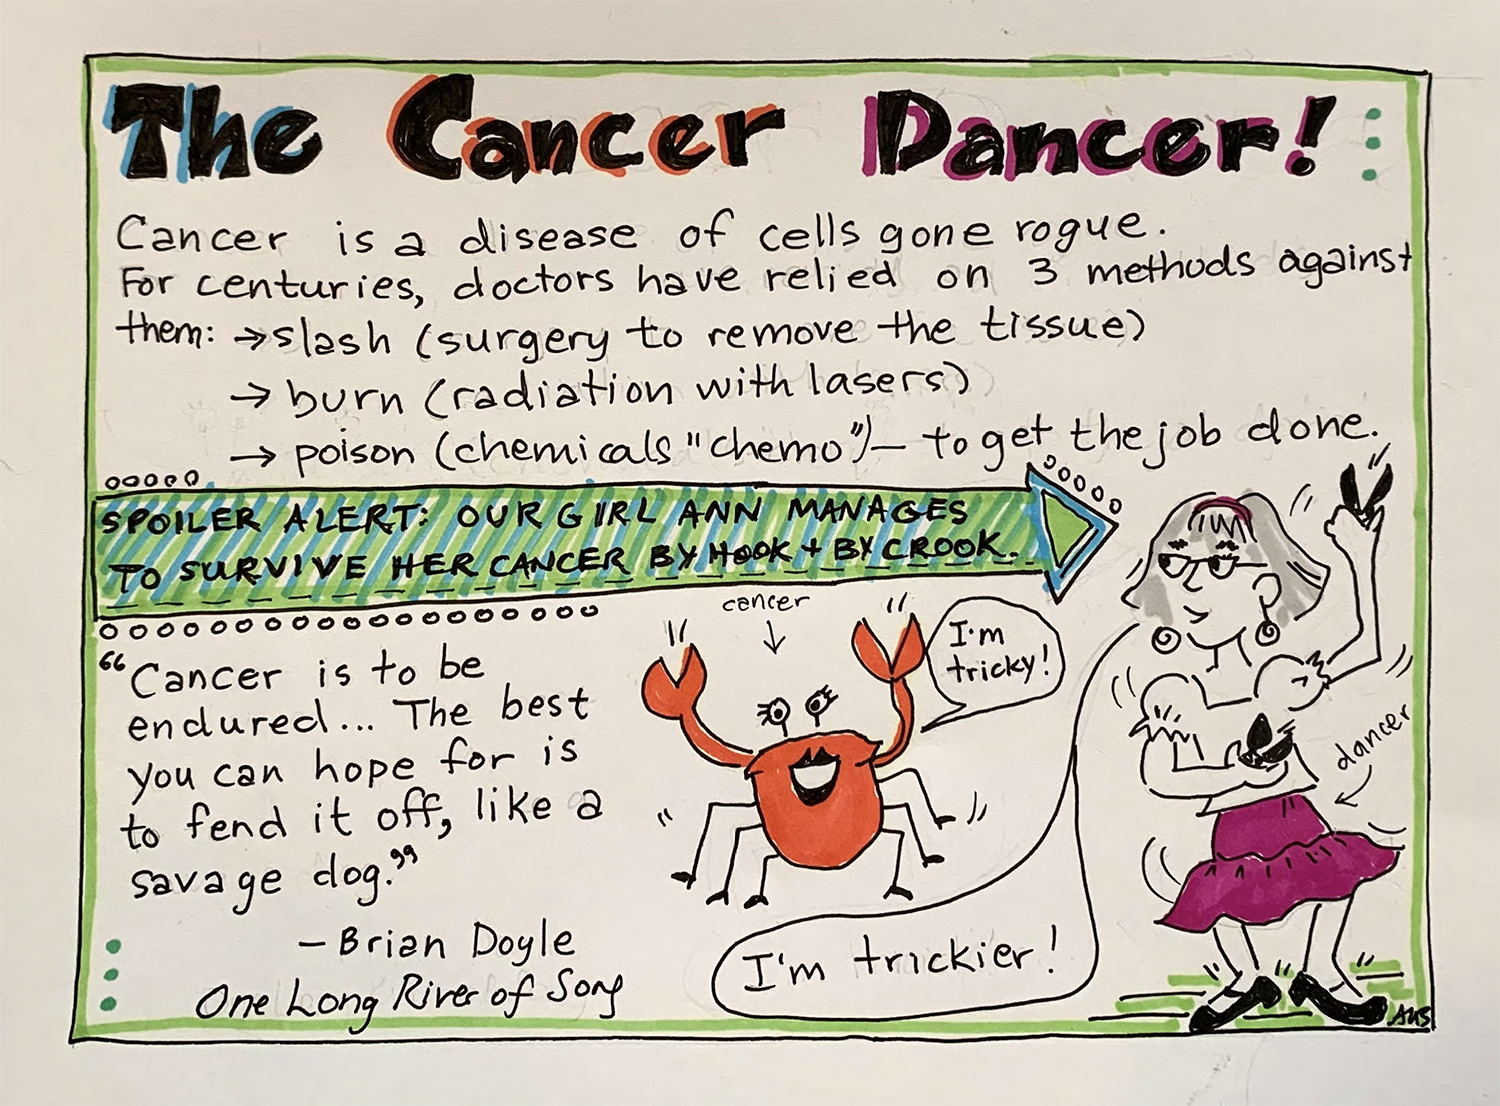 The Cancer Dancer!
Cancer is a disease of cells gone rogue.
For centuries, doctors have relied on 3 methods against
them: → slash (surgery to remove the tissue)
→ burn (radiation with lasers)
→ poison (chemicals "chemo") — to get the job done.
SPOILER ALERT: OUR GIRL ANN MANAGES
TO SURVIVE HER CANCER BY HOOK + BY CROOK.
"Cancer is to be
endured... The best
you can hope for is
to fend it off, like a
savage dog."
— Brian Doyle
One Long River of Song
cancer
I'm
tricky!
I'm trickier!
dancer
AHS